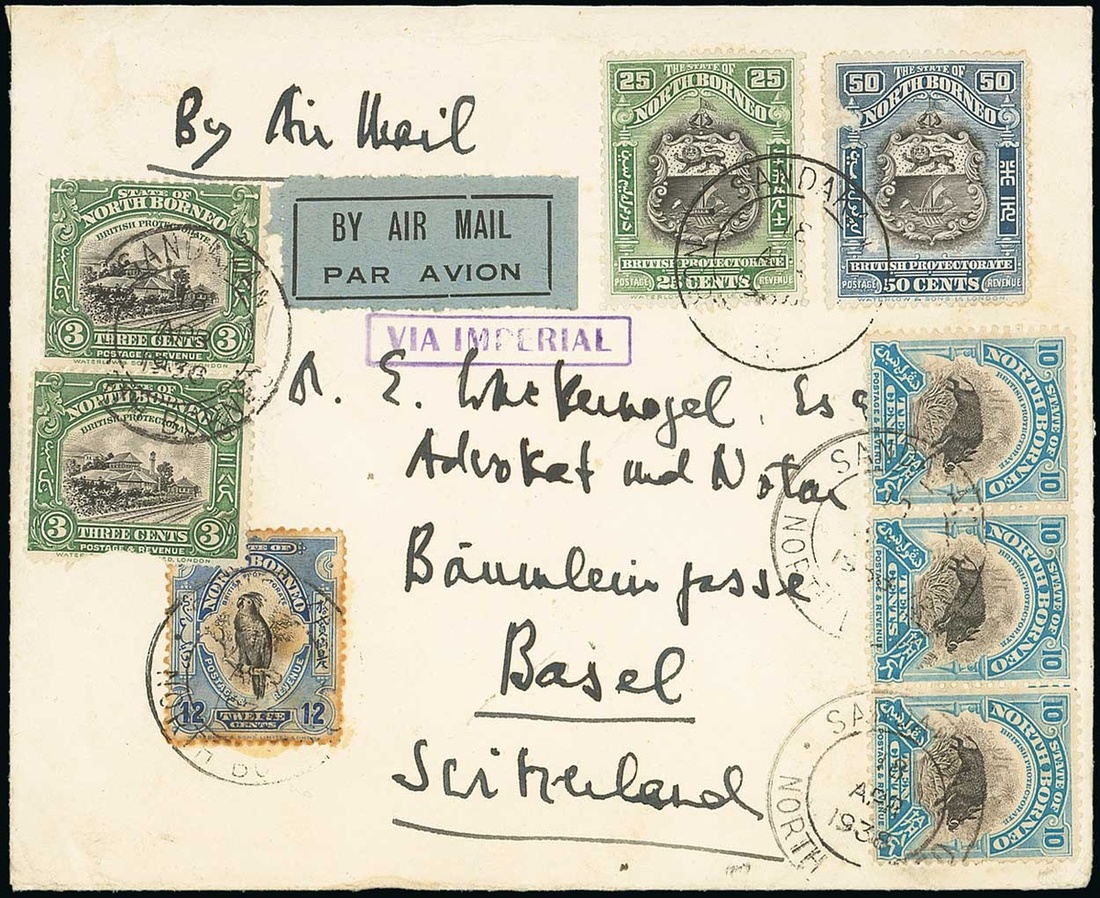 By Air Mail
BY AIR MAIL
PAR AVION
VIA IMPERIAL
25 25
THE STATE OF
NORTH BORNEO
BRITISH PROTECTORATE
POSTAGE REVENUE
25 CENTS
50 50
THE STATE OF
NORTH BORNEO
BRITISH PROTECTORATE
POSTAGE REVENUE
50 CENTS
WATERLOW & SONS LD LONDON
STATE OF
NORTH BORNEO
BRITISH PROTECTORATE
3 3
THREE CENTS
POSTAGE & REVENUE
NORTH BORNEO
BRITISH PROTECTORATE
3 3
THREE CENTS
POSTAGE & REVENUE
E. Wackernagel, Esq
Advokat und Notar
Bäumleingasse
Basel
Switzerland
NORTH BORNEO
POSTAGE REVENUE
12 12
TWELVE
CENTS
10 10
STATE OF
NORTH BORNEO
BRITISH PROTECTORATE
TEN
CENTS
POSTAGE & REVENUE
10 10
STATE OF
NORTH BORNEO
BRITISH PROTECTORATE
TEN
CENTS
POSTAGE & REVENUE
10 10
STATE OF
NORTH BORNEO
BRITISH PROTECTORATE
TEN
CENTS
POSTAGE & REVENUE
SANDAKAN
NORTH